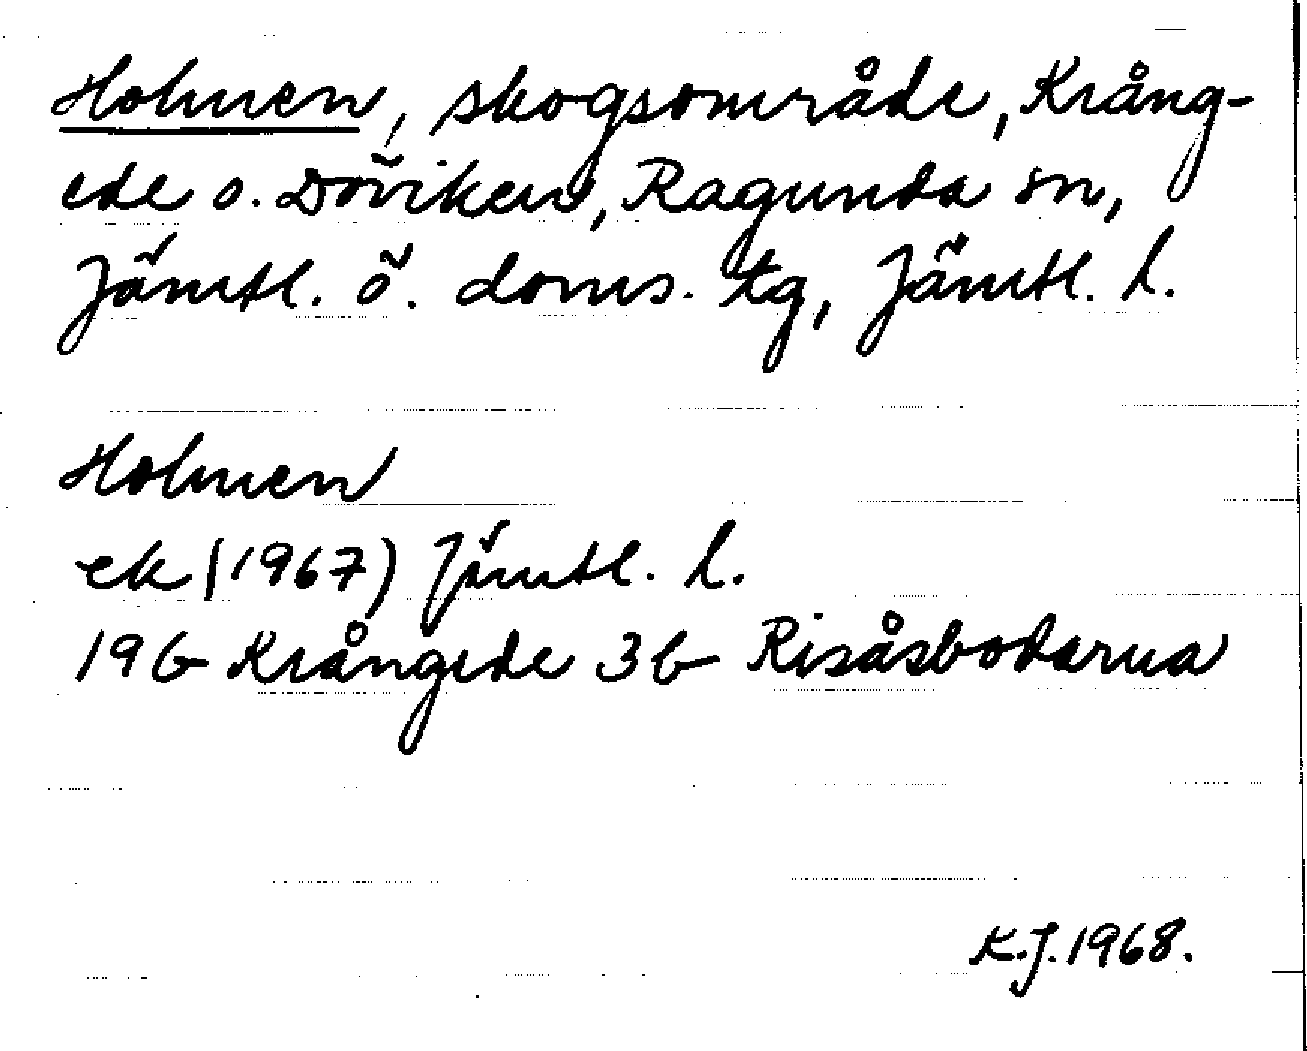 Holmen, skogsområde, Krång-
ede o. Döviken, Ragunda sn,
Jämtl. ö. doms. tg, Jämtl. l.
Holmen
ek (1967) Jämtl. l.
19G Krångede 3b Risåsbodarna
K.J. 1968.